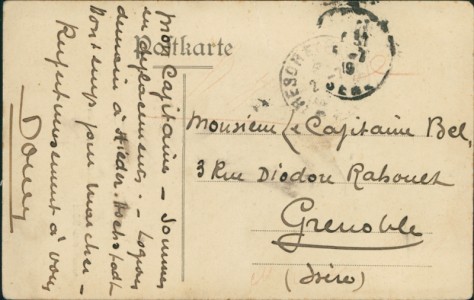 Postkarte
Mon Capitaine – Sommes
en déplacements. – Logeons
demain à Nieder-
Bon temps pour marcher –
Respectueusement à vous
TRESOR ET
Monsieur Le Capitaine Bel,
3 Rue Diodore Rahoult
Grenoble
(Isère)